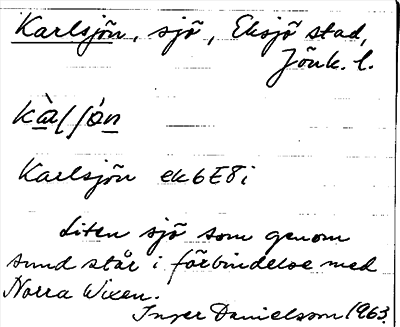 Karlsjön, sjö, Eksjö stad,
Jönk. l.
Karlsjön ek6E8i
Liten sjö som genom
sund står i förbindelse med
Norra Wixen.
Inger Danielsson 1963.